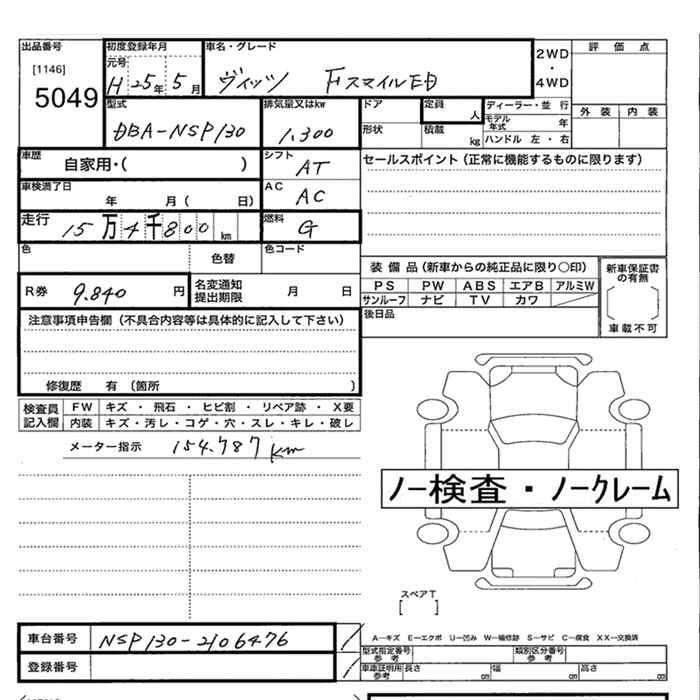 出品番号 初度登録年月 車名・グレード 2WD・4WD 評価点
[1146] 元号
5049 H25年5月 ヴィッツ FスマイルED
型式 排気量又はkw ドア 定員 人 ディーラー・並行 外装 内装
DBA-NSP130 1,300 形状 積載 kg モデル年式 年
ハンドル 左・右
車歴 自家用・( ) シフト AT セールスポイント(正常に機能するものに限ります)
車検満了日 年 月( 日) AC AC
走行 15万4千800km 燃料 G
色 色替 色コード
装備品(新車からの純正品に限り○印) 新車保証書の有無
R券 9,840円 名変通知提出期限 月 日 PS PW ABS エアB アルミW
サンルーフ ナビ TV カワ
後日品 車載不可
注意事項申告欄(不具合内容等は具体的に記入して下さい)
修復歴 有(箇所 )
検査員記入欄 FW キズ・飛石・ヒビ割・リペア跡・X要
内装 キズ・汚レ・コゲ・穴・スレ・キレ・破レ
メーター指示 154,787km
ノー検査・ノークレーム
スペアT
[ ]
車台番号 NSP130-2106476
A―キズ E―エクボ U―凹み W―補修跡 S―サビ C―腐食 XX―交換済
型式指定番号 参考 類別区分番号 参考
登録番号 車庫証明用 参考 長さ cm 幅 cm 高さ cm